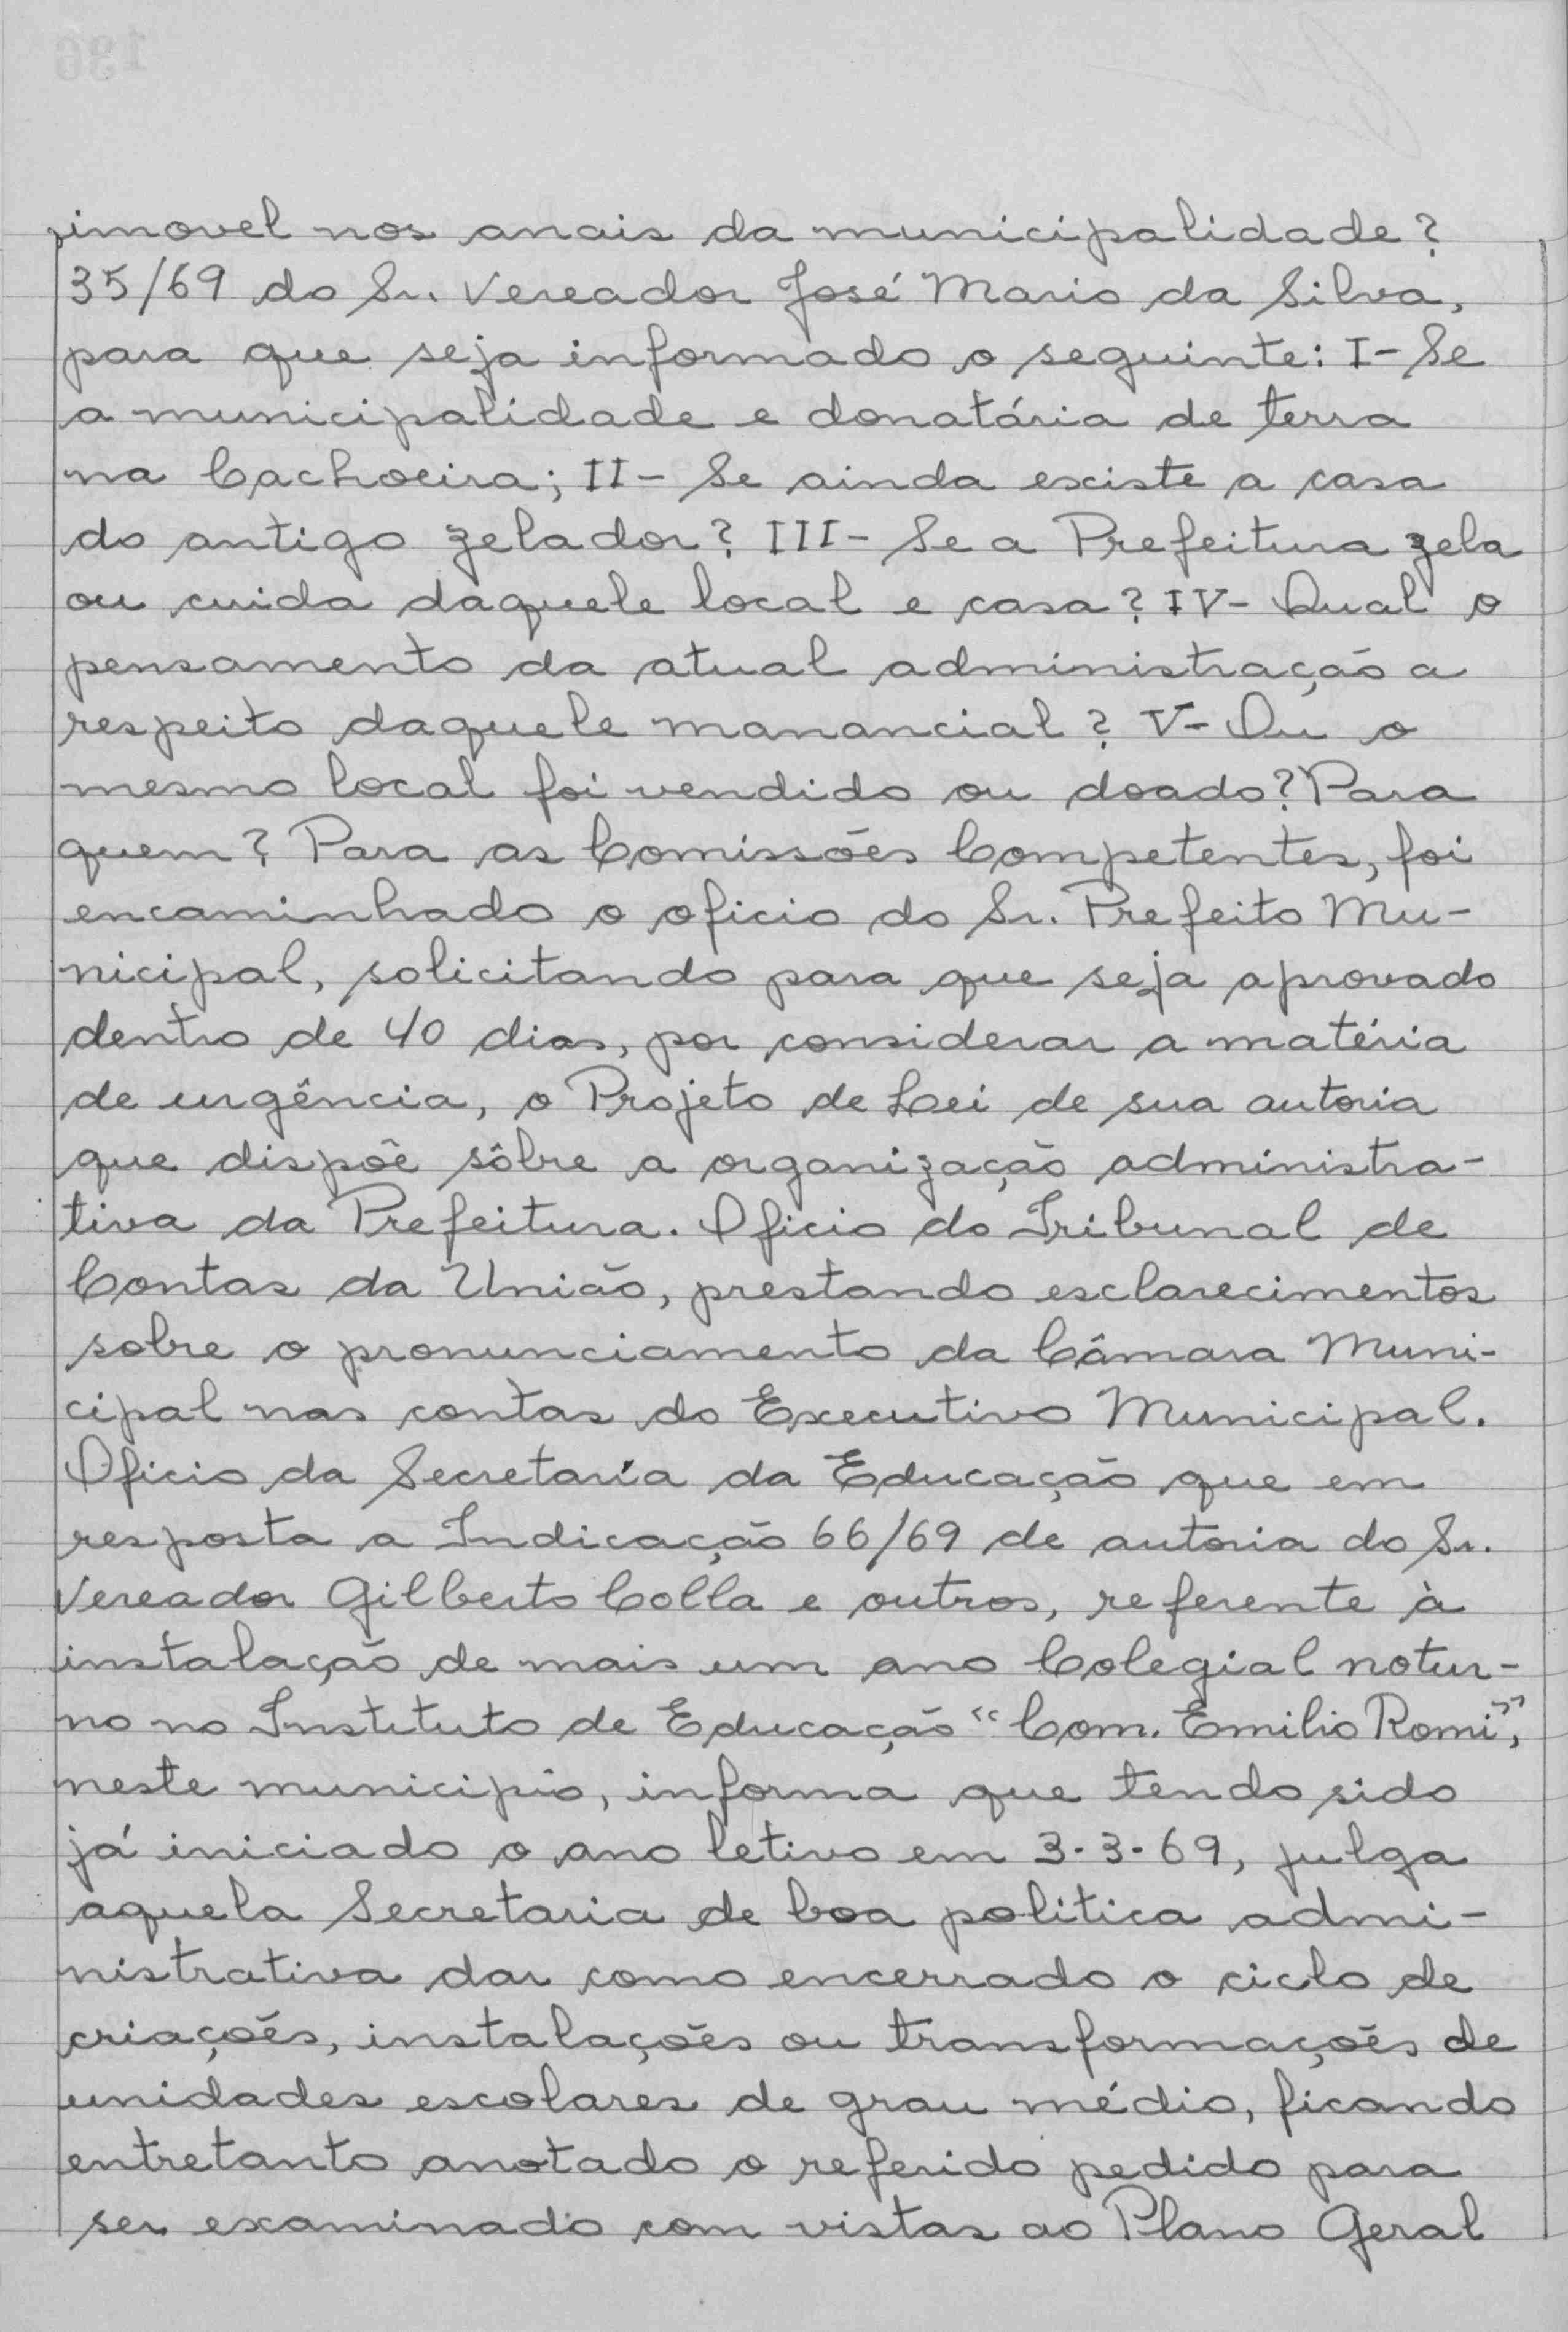 imovel nos anais da municipalidade?
35/69 do Sr. Vereador José Mario da Silva,
para que seja informado o seguinte: I- Se
a municipalidade e donatária de terra
na Cachoeira; II- Se ainda existe a casa
do antigo zelador? III- Se a Prefeitura zela
ou cuida daquele local e casa? IV- Qual o
pensamento da atual administração a
respeito daquele manancial? V- Ou o
mesmo local foi vendido ou doado? Para
quem? Para as Comissões Competentes, foi
encaminhado o oficio do Sr. Prefeito Mu-
nicipal, solicitando para que seja aprovado
dentro de 40 dias, por considerar a matéria
de urgência, o Projeto de Lei de sua autoria
que dispõe sôbre a organização administra-
tiva da Prefeitura. Oficio do Tribunal de
Contas da União, prestando esclarecimentos
sobre o pronunciamento da Câmara Muni-
cipal nas contas do Executivo Municipal.
Oficio da Secretaria da Educação que em
resposta a Indicação 66/69 de autoria do Sr.
Vereador Gilberto Colla e outros, referente à
instalação de mais um ano Colegial notur-
no no Instituto de Educação "Com. Emilio Romi",
neste municipio, informa que tendo sido
já iniciado o ano letivo em 3-3-69, julga
aquela Secretaria de boa politica admi-
nistrativa dar como encerrado o ciclo de
criações, instalações ou transformações de
unidades escolares de grau médio, ficando
entretanto anotado o referido pedido para
ser examinado com vistas ao Plano Geral